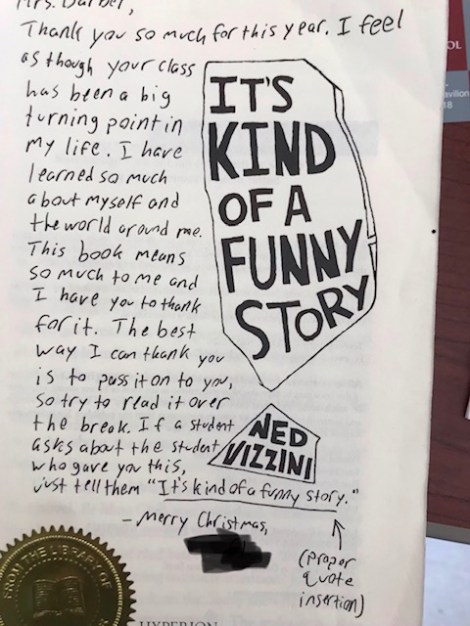 Mrs. Barber,
Thank you so much for this year. I feel
as though your class
has been a big
turning point in
my life. I have
learned so much
about myself and
the world around me.
This book means
so much to me and
I have you to thank
for it. The best
way I can thank you
is to pass it on to you,
so try to read it over
the break. If a student
asks about the student
who gave you this,
just tell them "It's kind of a funny story."
- Merry Christmas,
(proper
quote
insertion)
IT'S
KIND
OF A
FUNNY
STORY
NED
VIZZINI
FROM THE LIBRARY OF
HYPERION
OL
18